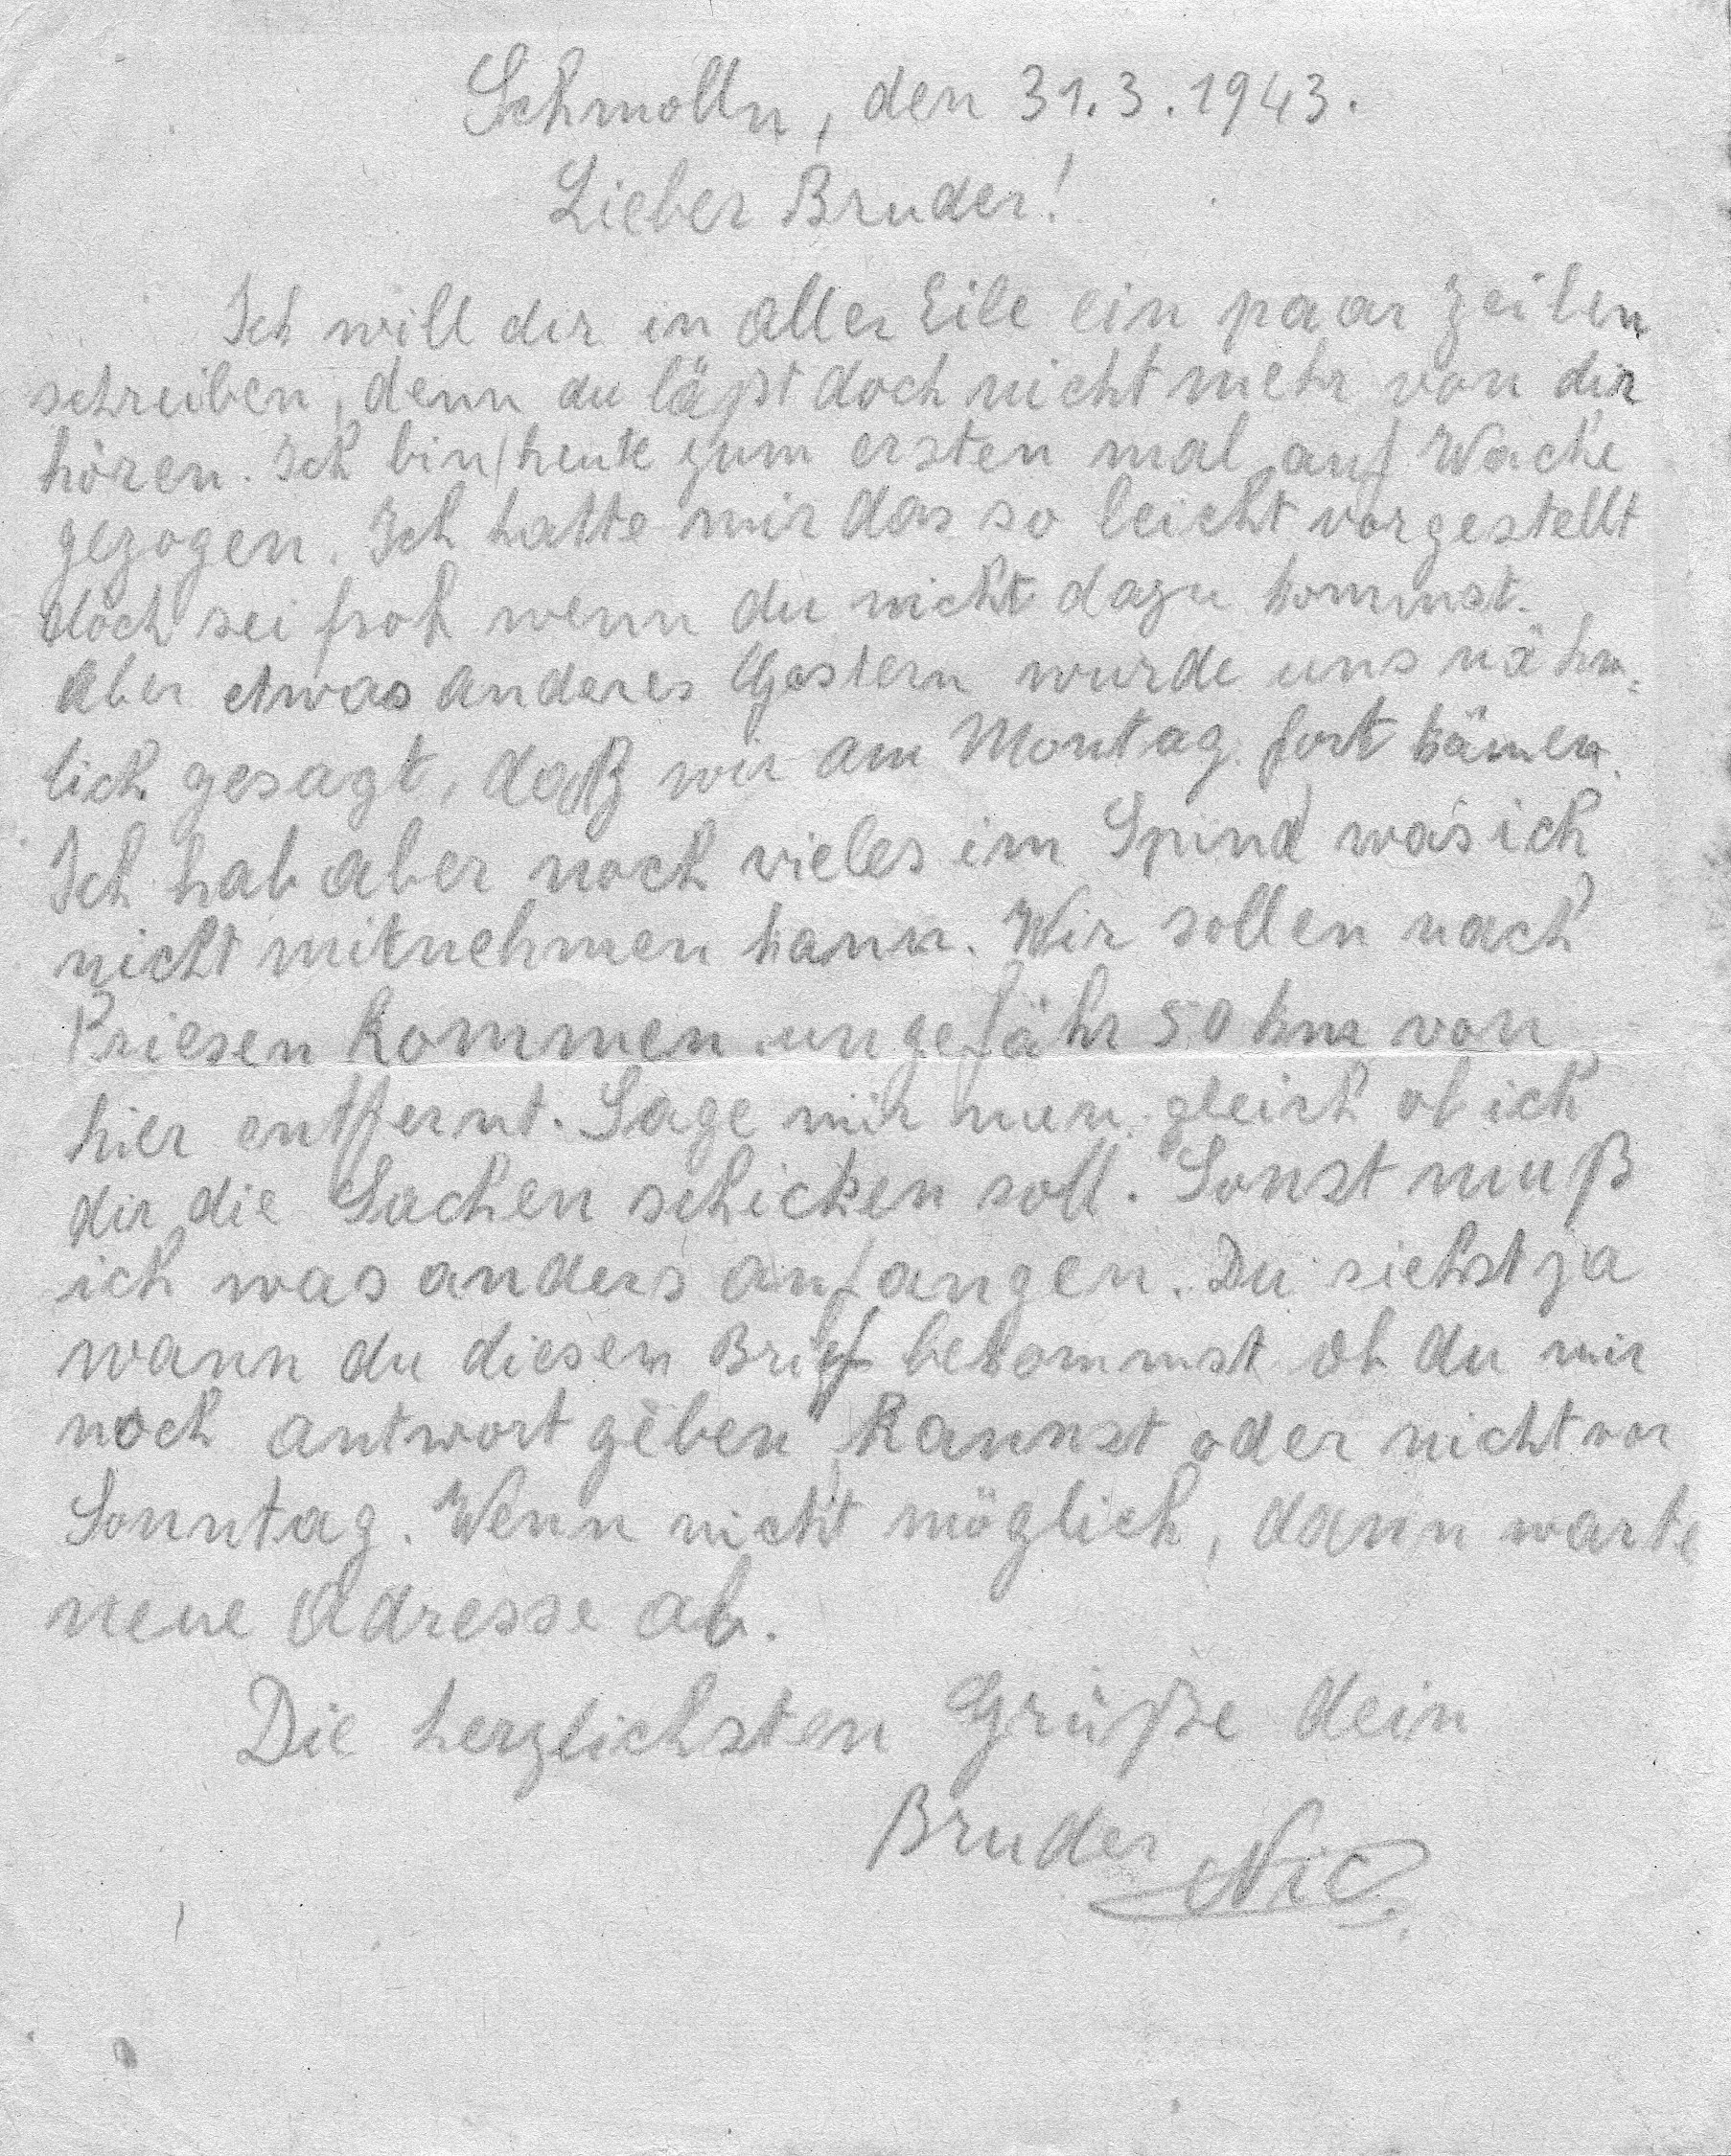 Schmolln, den 31.3.1943.
Lieber Bruder!
Ich will dir in aller Eile ein paar Zeilen
schreiben, denn du läßt doch nicht mehr von dir
hören. Ich bin heute zum ersten mal auf Wache
gezogen. Ich hatte mir das so leicht vorgestellt
doch sei froh wenn du nicht dazu kommst.
Aber etwas anderes Gestern wurde uns nähm-
lich gesagt, daß wir am Montag fort kämen.
Ich hab aber noch vieles im Spind was ich
nicht mitnehmen kann. Wir sollen nach
Priesen kommen ungefähr 50 km von
hier entfernt. Sage mir nun gleich ob ich
dir die Sachen schicken soll. Sonst muß
ich was anders anfangen. Du siehst ja
wann du diesen Brief bekommst ob du mir
noch antwort geben kannst oder nicht vor
Sonntag. Wenn nicht möglich, dann warte
neue Adresse ab.
Die herzlichsten Grüße dein
Bruder Nic